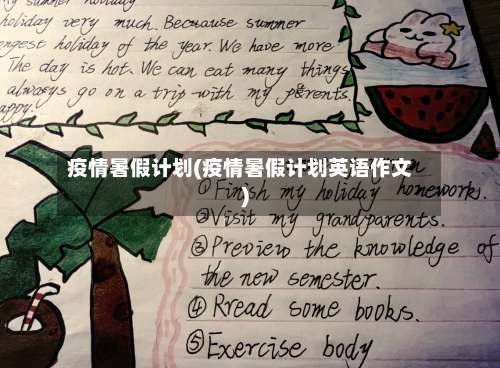 My summer holiday
holiday very much. Because summer
longest holiday of the year. We have more
The day is hot. We can eat many things
always go on a trip with my parents.
happy.
疫情暑假计划(疫情暑假计划英语作文
)
①Finish my holiday homeworks.
②Visit my grandparents.
③Preview the knowledge of
the new semester.
④Rread some books.
⑤Exercise body